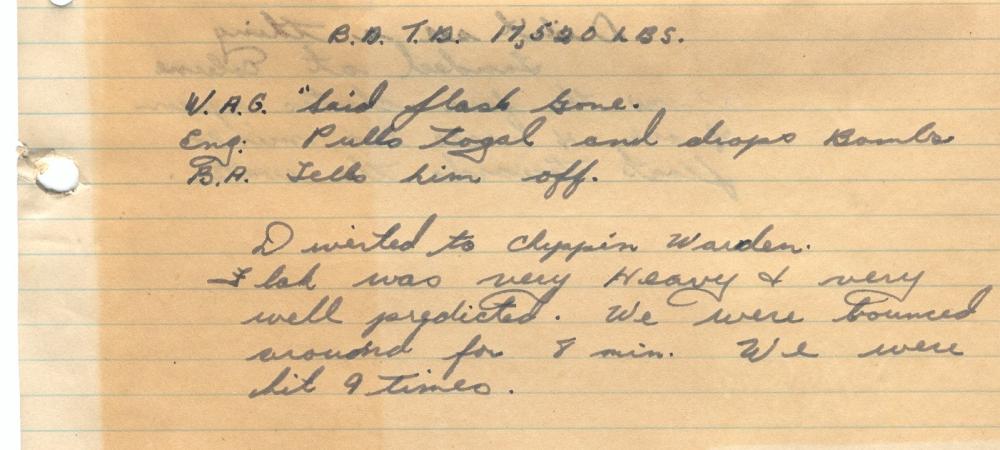 B.D.T.D. 17,520 LBS.
W.A.G. "Said flash gone.
Eng. Pulls Togal and drops Bombs
B.A. Tells him off.
Diverted to Chippin Warden.
Flak was very Heavy & very
well predicted. We were bounced
around for 8 min. We were
hit 9 times.